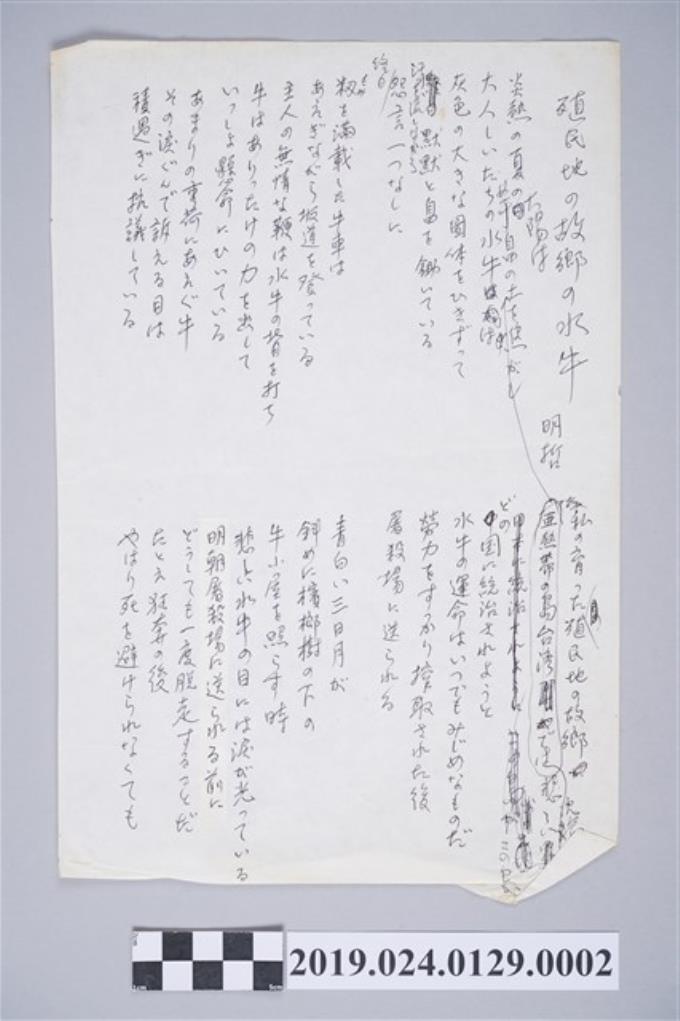 殖民地の故郷の水牛
明哲
炎熱の夏の
太陽は
大人しいたちの水牛は
灰色の大きな図体をひきずって
黙默と畠を鋤いている
怨言一つなしに
籾を満載した牛車は
あえぎながら坂道を登っている
主人の無情な鞭は水牛の背を打ち
牛はありったけの力を出して
いっしょ懸命にひいている
あまりの重荷にあえぐ牛
その涙ぐんで訴える目は
積過ぎに抗議している
私の育った殖民地の故郷
亜熱帯の島台湾
どの
国に統治されようと
水牛の運命はいつでもみじめなものだ
勞力をすっかり搾取された後
屠殺場に送られる
青白い三日月が
斜めに檳榔樹の下の
牛小屋を照らす時
悲しい水牛の目には涙が光っている
明朝屠殺場に送られる前に
どうしても一度脱走することだ
たとえ狂奔の後
やはり死を避けられなくても
2019.024.0129.0002